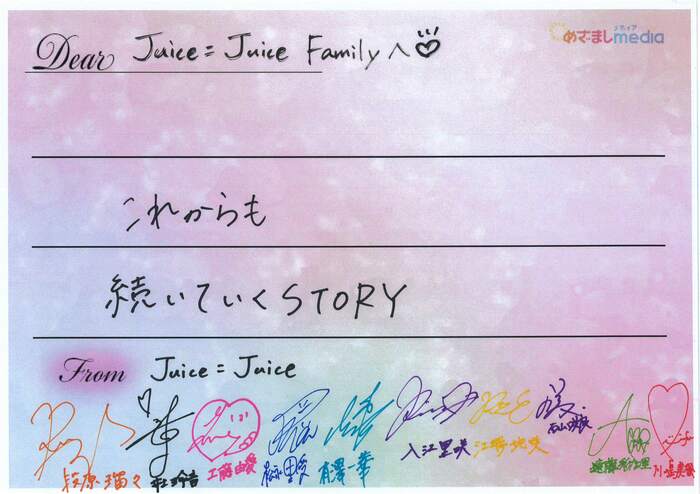 Dear Juice=Juice Familyへ♡
めざましmedia
メディア
これからも
続いていくSTORY
From Juice=Juice
段原瑠々
井上玲音
工藤由愛
松永里愛
有澤一華
入江里咲
江端妃咲
石山咲良
遠藤彩加里
川嶋美楓